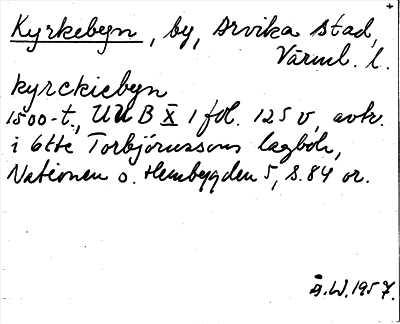 Kyrkebyn, by, Arvika stad,
Värml. l.
kyrckiebyn
1500-t., UUB X 1 fol. 125 v, avkr.
i Otte Torbjörnssons lagbok,
Nationen o. Hembygden 5, s. 84 or.
G.W. 1957.